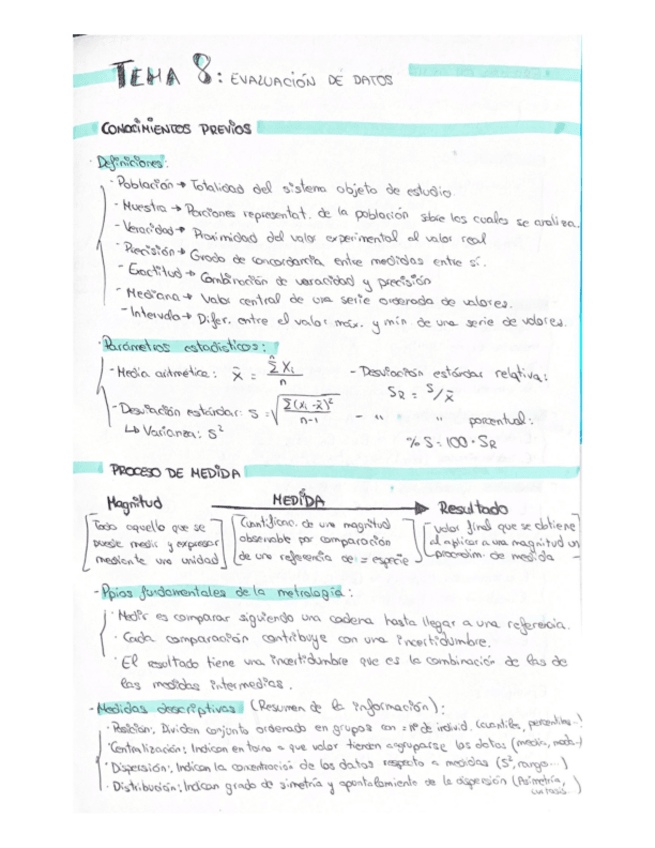 TEMA 8: EVALUACIÓN DE DATOS
CONOCIMIENTOS PREVIOS
· Definiciones:
· Población → Totalidad del sistema objeto de estudio.
- Muestra → Porciones representat. de la población sbre las cuales se analiza.
- Veracidad → Proximidad del valor experimental al valor real
· Precisión → Grado de concordancia entre medidas entre sí.
- Exactitud → Combinación de veracidad y precisión
- Mediana → Valor central de una serie ordenada de valores.
- Intervalo → Difer. entre el valor máx. y mín de una serie de valores.
· Parámetros estadísticos:
- Media aritmética: x̄ = Σ Xi / n
- Desviación estándar relativa:
SR = S/x̄
- Desviación estándar: S = √(Σ(xi - x̄)² / n-1)
- " " porcentual:
↳ Varianza: S²
% S = 100 · SR
PROCESO DE MEDIDA
Magnitud MEDIDA → Resultado
Todo aquello que se puede medir y expresar mediante una unidad
Cuantificac. de una magnitud observable por comparación de una referencia de = especie
valor final que se obtiene al aplicar a una magnitud un procedim. de medida
- Ppios fundamentales de la metrología:
· Medir es comparar siguiendo una cadena hasta llegar a una referencia.
· Cada comparación contribuye con una incertidumbre.
· El resultado tiene una incertidumbre que es la combinación de las de
las medidas intermedias.
- Medidas descriptivas (Resumen de la información):
· Posición: Dividen conjunto ordenado en grupos con = nº de individ. (cuantiles, percentiles...)
· Centralización: Indican en torno a que valor tienden agruparse los datos (media, moda...)
· Dispersión: Indican la concentración de los datos respecto a medidas (S², rango...)
· Distribución: Indican grado de simetría y apuntalamiento de la dispersión (Asimetría,
curtosis...)